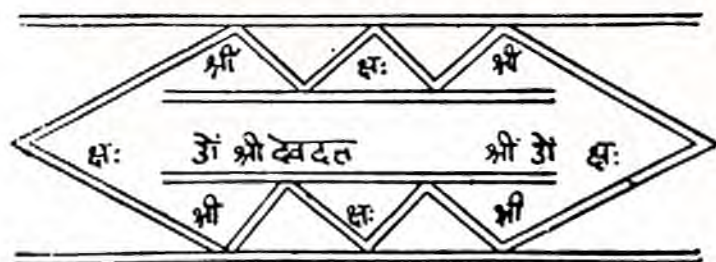 श्रीं क्षः श्रीं
क्षः ॐ श्रीं देवदत्त श्रीं ॐ क्षः
श्रीं क्षः श्रीं